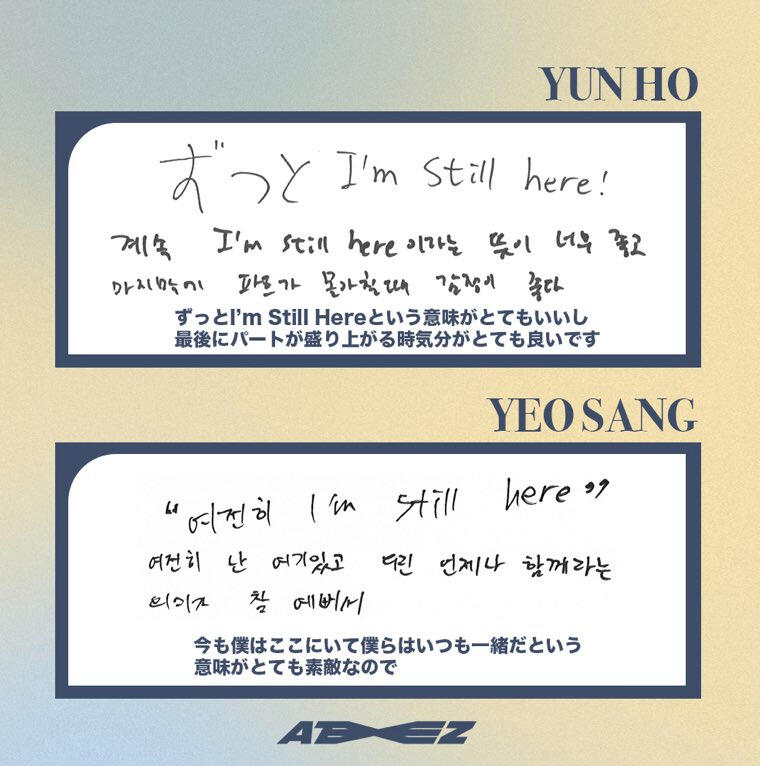 YUN HO
ずっと I'm still here!
계속 I'm still here 이라는 뜻이 너무 좋고
마지막에 파트가 몰아칠때 감정이 좋다
ずっとI'm Still Hereという意味がとてもいいし
最後にパートが盛り上がる時気分がとても良いです
YEO SANG
“여전히 I'm still here”
여전히 난 여기있고 우린 언제나 함께라는
의미가 참 예뻐서
今も僕はここにいて僕らはいつも一緒だという
意味がとても素敵なので